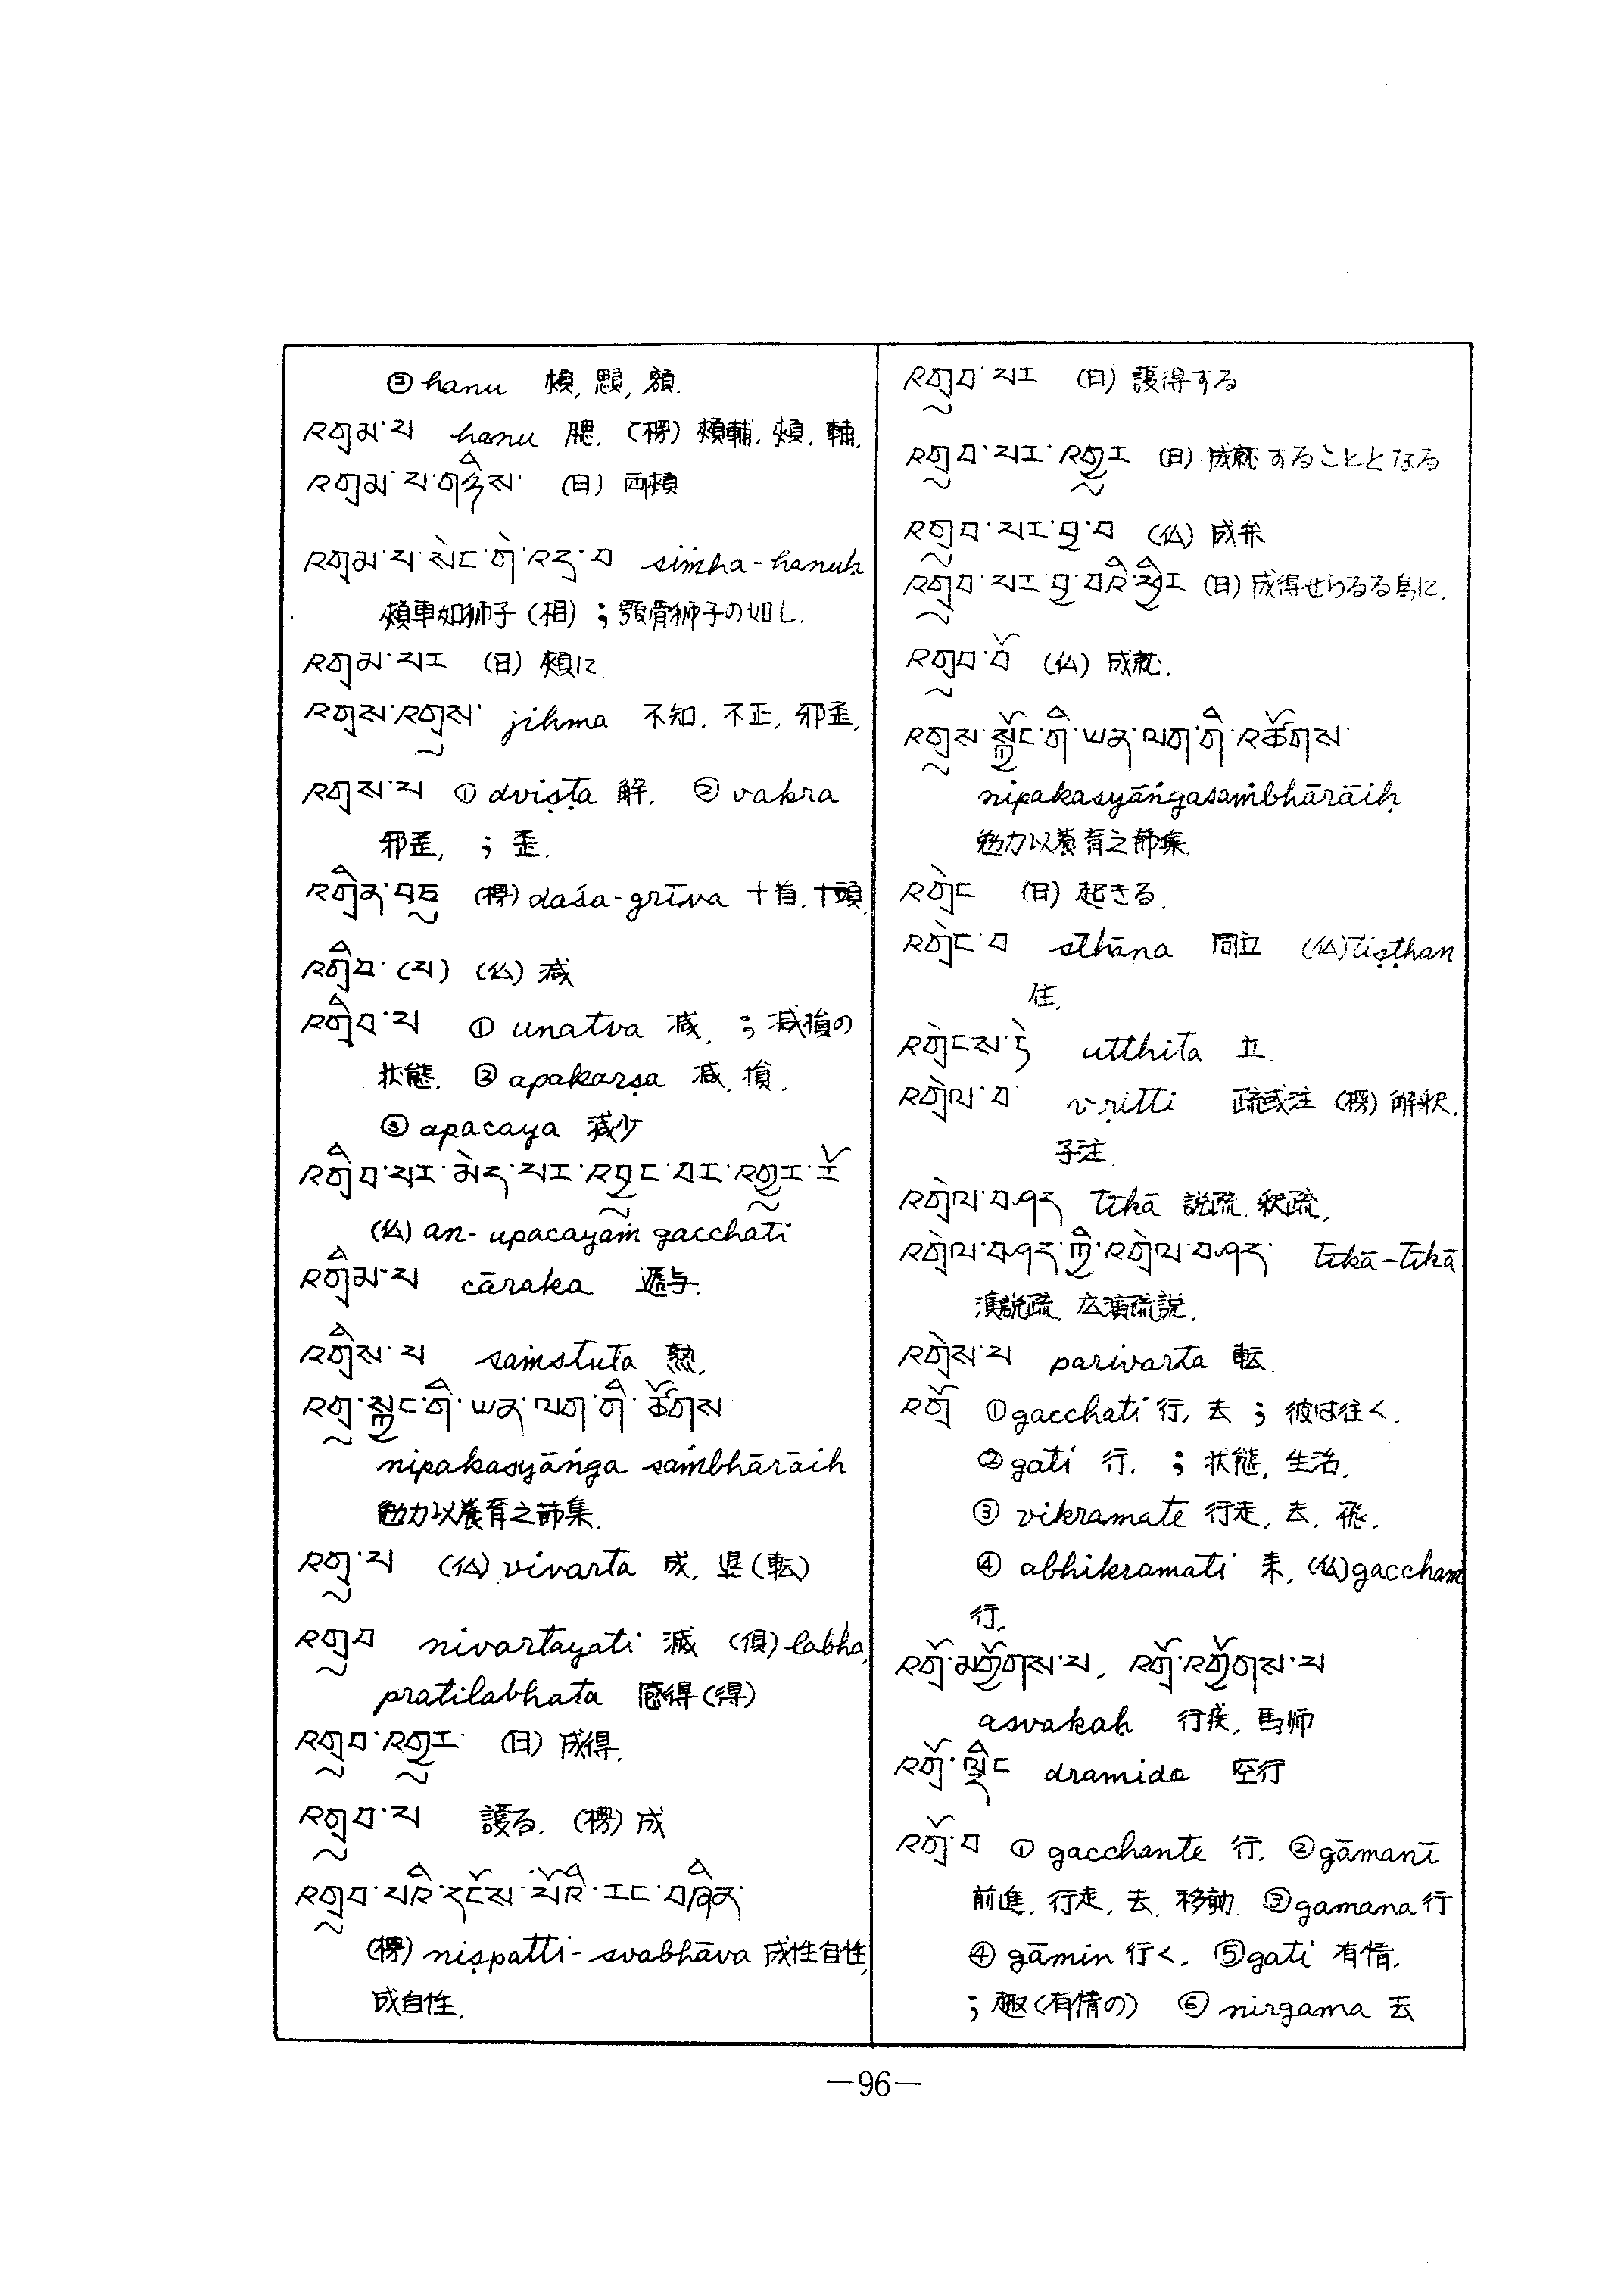 ② hanu 頬, 顋, 頷.
འགྲམ་པ hanu 腮. (楞) 頬輔. 頬. 輔.
འགྲམ་པ་གཉིས་ (日) 両頬
འགྲམ་པ་སེང་གེ་འདྲ་བ siṁha-hanuḥ
頬車如獅子 (相) ; 顎骨獅子の如し.
འགྲམ་པར (日) 頬に.
འགྲས་འགྲུས་ jihma 不知. 不正, 邪歪,
འགྲས་པ ① dviṣṭa 解. ② vakra
邪歪, ; 歪.
འགྲིན་བཅུ (楞) daśa-grīva 十首. 十頭.
འགྲིབ་ (པ) (仏) 減
འགྲིབ་པ ① unatva 減. ; 減損の
状態. ② apakarṣa 減, 損.
③ apacaya 減少
འགྲིབ་པར་མེད་པར་འབྱུང་བར་འགྱུར་རོ
(仏) an-upacayaṁ gacchati
འགྲིམ་པ cāraka 遞与.
འགྲིས་པ saṁstuta 熟.
འགྲུ་སྐྱང་གི་ཡན་ལག་གི་ཚོགས
nipakasyāṅga saṁbhārāih
勉力以養育之節集.
འགྲུ་པ (仏) vivarta 成, 退(転)
འགྲུབ nivartayati 滅 (倶) labha,
pratilabhata 感得(得)
འགྲུབ་འགྱུར་ (日) 成得.
འགྲུབ་པ 護る. (楞) 成
འགྲུབ་པའི་དངོས་པོའི་རང་བཞིན་
(楞) niṣpatti-svabhāva 成性自性,
成自性.
འགྲུབ་པར (日) 護得する
འགྲུབ་པར་འགྱུར (日) 成就することとなる
འགྲུབ་པར་བྱ་བ (仏) 成弁
འགྲུབ་པར་བྱ་བའི་ཕྱིར (日) 成得せらるる為に.
འགྲུབ་བོ (仏) 成就.
འགྲུས་སྐྱོང་གི་ཡན་ལག་གི་འཚོགས་
nipakasyāṅgasaṁbhārāiḥ
勉力以養育之節集.
འགྲེང (日) 起きる.
འགྲེང་བ sthāna 同立 (仏)tiṣṭhan
住.
འགྲེངས་ཏེ utthita 立.
འགྲེལ་བ vṛitti 疏或注 (楞) 解釈.
子注.
འགྲེལ་བཤད tīkā 説疏. 釈疏.
འགྲེལ་བཤད་ཀྱི་འགྲེལ་བཤད་ tīkā-tīkā
演説疏. 広演疏説.
འགྲེས་པ parivarta 転.
འགྲོ ① gacchati 行, 去 ; 彼は往く.
② gati 行. ; 状態, 生活.
③ vikramate 行走, 去. 飛.
④ abhikramati 来, (仏)gaccham
行.
འགྲོ་མགྱོགས་པ, འགྲོ་འགྱོགས་པ
asvakaḥ 行疾. 馬师
འགྲོ་ལྡིང dramida 空行
འགྲོ་བ ① gacchante 行. ② gāmanī
前進. 行走, 去. 移動. ③ gamana 行
④ gāmin 行く. ⑤ gati 有情.
; 趣(有情の) ⑥ nirgama 去
—96—